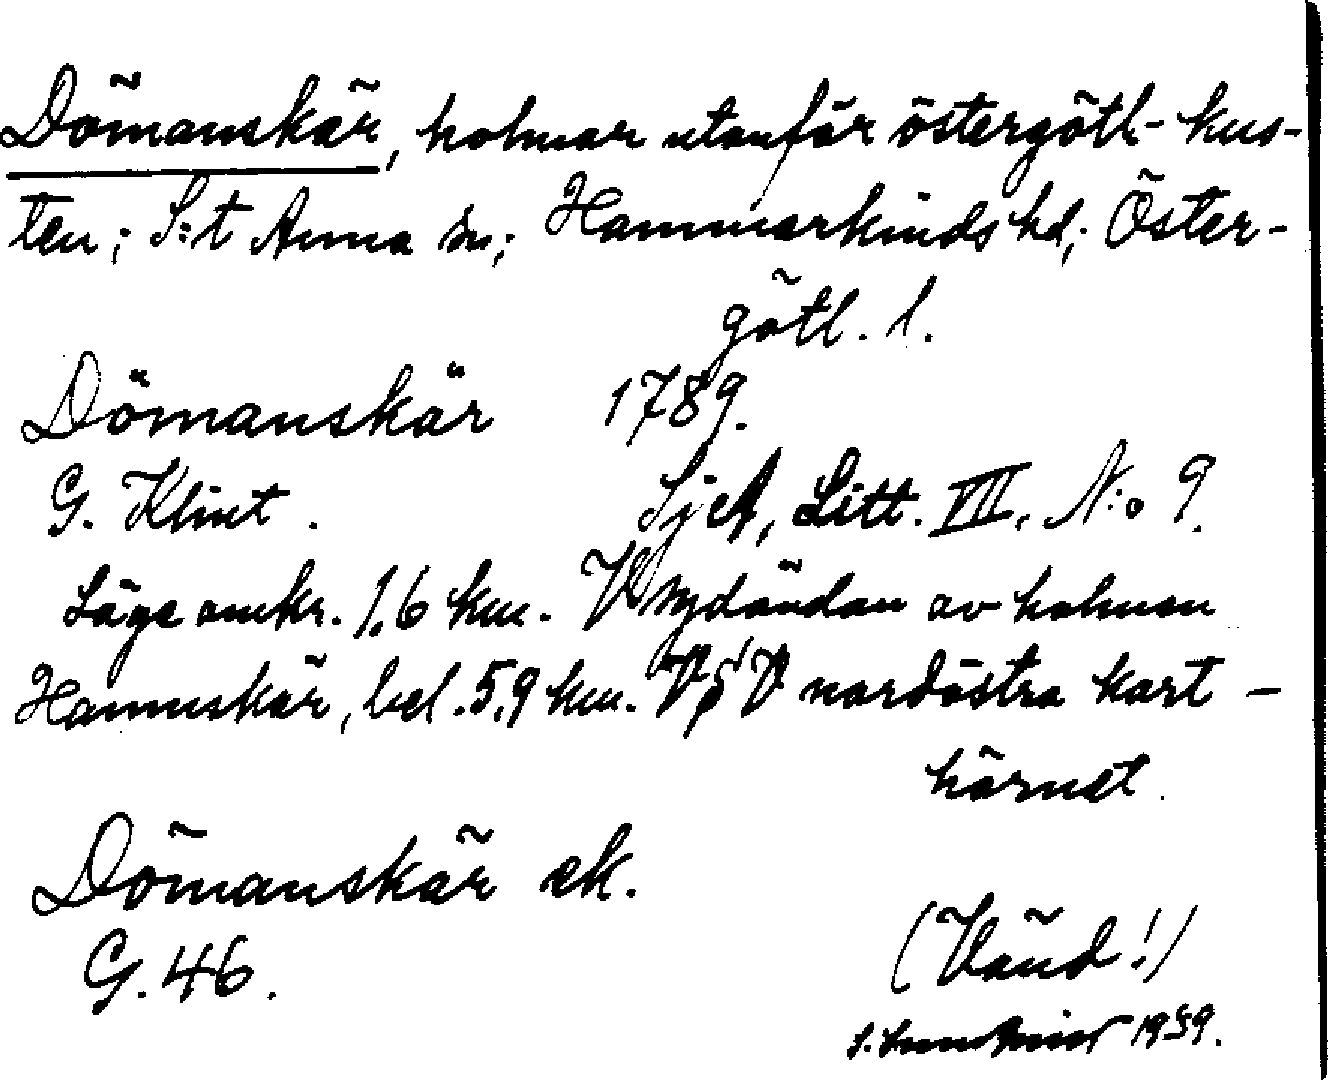 Dömanskär, holmar utanför östergötl- kus-
ten; S:t Anna sn; Hammarkinds hd; Öster-
götl. l.
Dömanskär 1789.
G. Klint. SjeA, Litt. VII, N:o 9.
Läge omkr. 1,6 km. V sydändan av holmen
Hamnskär, bel. 5,9 km. VSV nordöstra kart-
hörnet.
Dömanskär ek.
G. 46.
(Vänd!)
S. 1959.